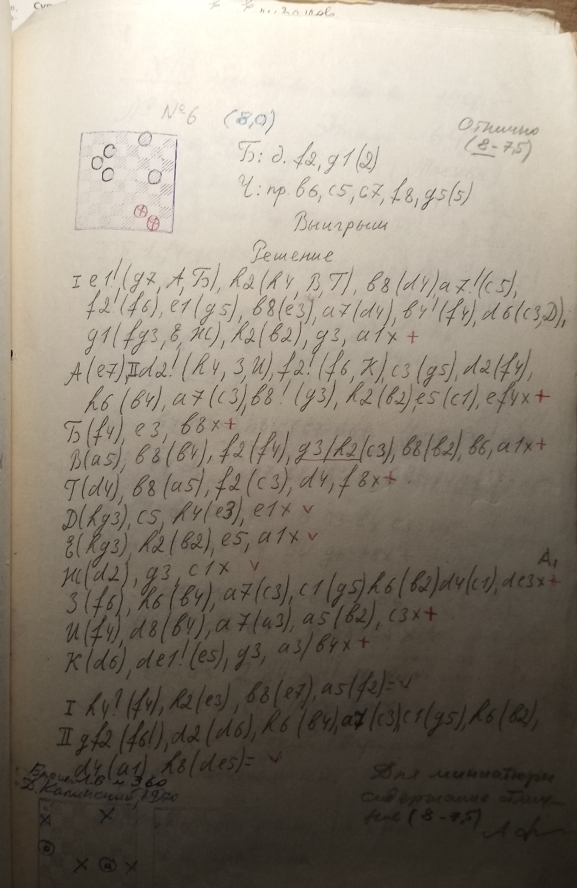 №6 (8,0)
Отлично
(8-7,5)
Б: д. f2, g1(2)
Ч: пр. b6, c5, c7, f8, g5(5)
Выигрыш
Решение
I e1! (g7, А, Б), h2 (h4, В, Г), b8 (d4) a7! (c5),
f2! (f6), e1 (g5), b8 (e3), a7 (d4), b4! (f4), d6 (c3, Д),
g1 (fg3, Е, Ж), h2 (b2), g3, a1x +
А (e7) II d2! (h4, З, И), f2! (f6, К), c3 (g5), d2 (f4),
h6 (b4), a7 (c3), b8! (g3), h2 (b2), e5 (c1), ef4x +
Б (f4), e3, b8x +
В (a5), b8 (b4), f2 (f4), g3/h2 (c3), b8 (b2), b6, a1x +
Г (d4), b8 (a5), f2 (c3), d4, f8x +
Д (hg3), c5, h4 (e3), e1x v
Е (hg3) h2 (b2), e5, a1x v
Ж (d2), g3, c1x v
А₁
З (f6), h6 (b4), a7 (c3), c1 (g5) h6 (b2) d4 (c1), de3x +
И (f4), d8 (b4), a7 (a3), a5 (b2), c3x +
К (d6), de1! (e5), g3, a3/b4x +
I h4? (f4), h2 (e3), b8 (e7), a5 (f2)= v
II gf2 (f6!), d2 (d6), h6 (b4), a7 (c3) c1 (g5), h6 (b2),
d4 (a1), h8 (de5)= v
Д. Калинский, 1950
Для миниатюры
содержание
(8-7,5)